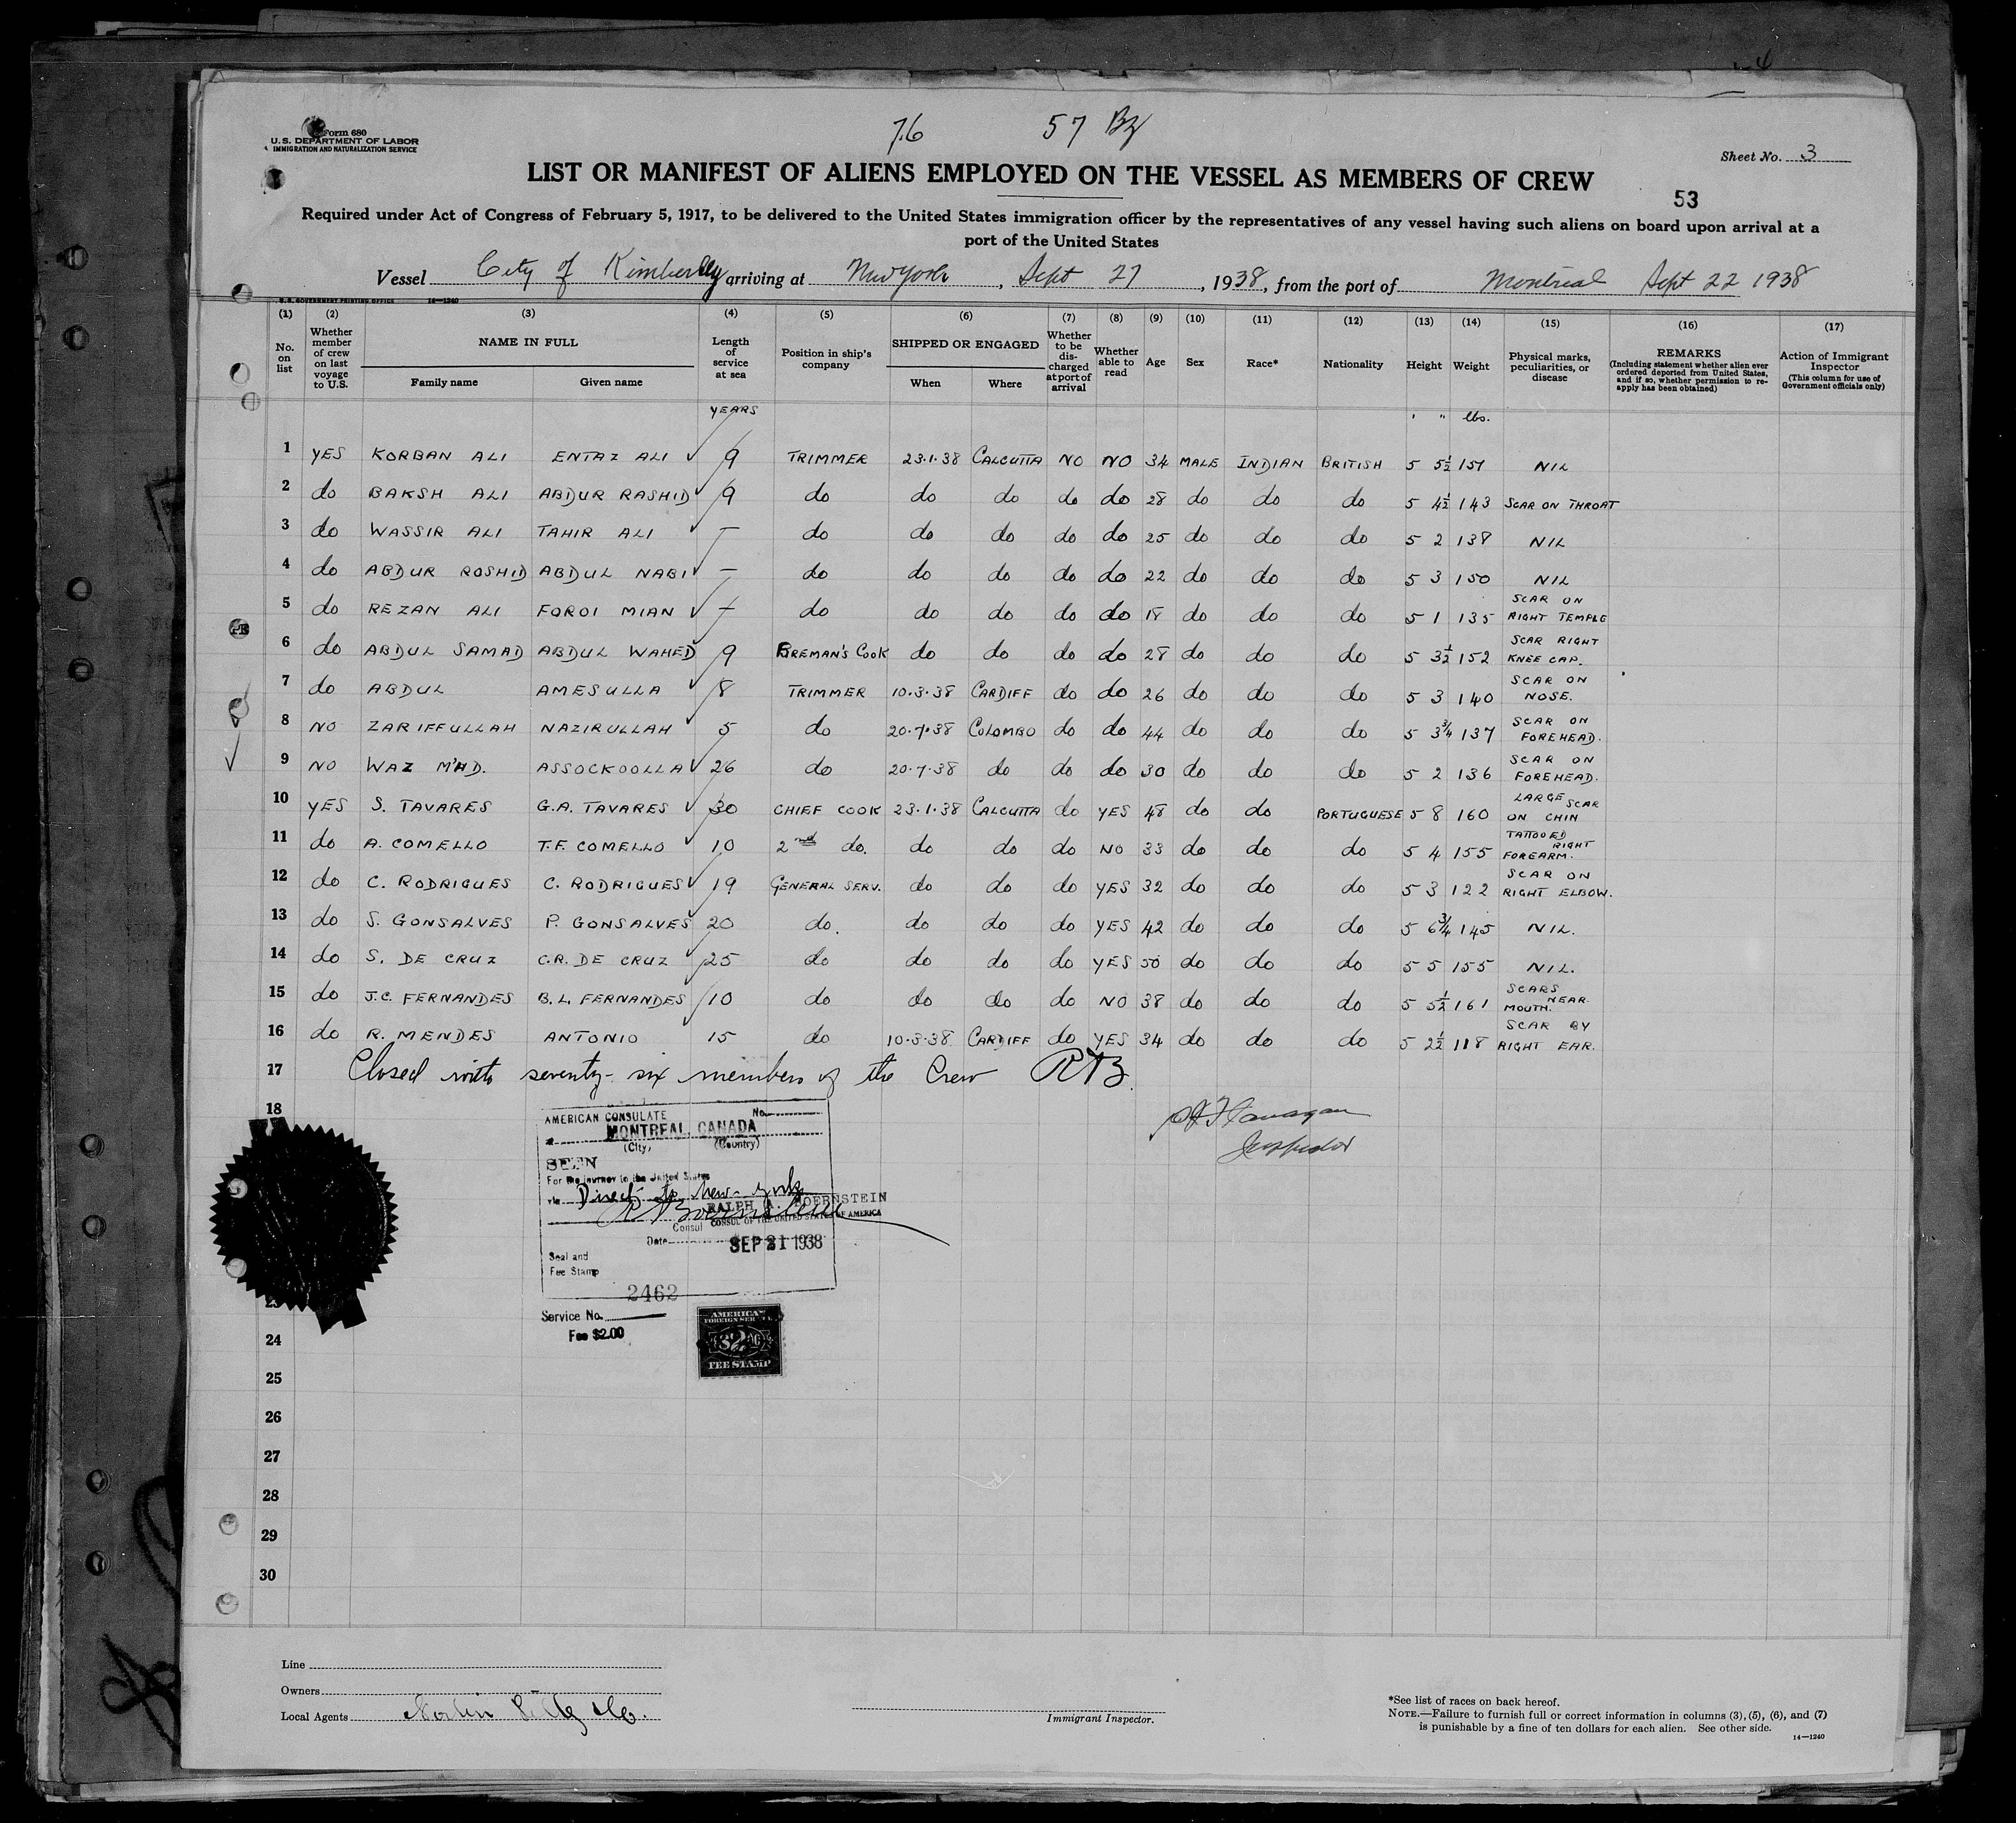 76 57 Bz
Form 680
U.S. DEPARTMENT OF LABOR
IMMIGRATION AND NATURALIZATION SERVICE
Sheet No. 3
LIST OR MANIFEST OF ALIENS EMPLOYED ON THE VESSEL AS MEMBERS OF CREW
53
Required under Act of Congress of February 5, 1917, to be delivered to the United States immigration officer by the representatives of any vessel having such aliens on board upon arrival at a
port of the United States
Vessel City of Kimberley arriving at New York, Sept 27, 1938, from the port of Montreal Sept 22 1938
U.S. GOVERNMENT PRINTING OFFICE 14—1240
(1) (2) (3) (4) (5) (6) (7) (8) (9) (10) (11) (12) (13) (14) (15) (16) (17)
No. on list
Whether member of crew on last voyage to U.S.
NAME IN FULL
Family name Given name
Length of service at sea
Position in ship's company
SHIPPED OR ENGAGED
When Where
Whether to be discharged at port of arrival
Whether able to read
Age Sex Race* Nationality Height Weight
Physical marks, peculiarities, or disease
REMARKS
(Including statement whether alien ever ordered deported from United States, and if so, whether permission to reapply has been obtained)
Action of Immigrant Inspector
(This column for use of Government officials only)
YEARS ' " lbs.
1 YES KORBAN ALI ENTAZ ALI 9 TRIMMER 23.1.38 CALCUTTA NO NO 34 MALE INDIAN BRITISH 5 5½ 151 NIL
2 do BAKSH ALI ABDUR RASHID 9 do do do do do 28 do do do 5 4½ 143 SCAR ON THROAT
3 do WASSIR ALI TAHIR ALI — do do do do do 25 do do do 5 2 138 NIL
4 do ABDUR ROSHID ABDUL NABI — do do do do do 22 do do do 5 3 150 NIL
5 do REZAN ALI FOROI MIAN — do do do do do 18 do do do 5 1 135 SCAR ON RIGHT TEMPLE
6 do ABDUL SAMAD ABDUL WAHED 9 FIREMAN'S COOK do do do do 28 do do do 5 3½ 152 SCAR RIGHT KNEE CAP.
7 do ABDUL AMESULLA 8 TRIMMER 10.3.38 CARDIFF do do 26 do do do 5 3 140 SCAR ON NOSE.
8 NO ZARIFFULLAH NAZIRULLAH 5 do 20.7.38 COLOMBO do do 44 do do do 5 3¾ 137 SCAR ON FOREHEAD.
9 NO WAZ M'HD. ASSOCKOOLLA 26 do 20.7.38 do do do 30 do do do 5 2 136 SCAR ON FOREHEAD.
10 YES S. TAVARES G.A. TAVARES 30 CHIEF COOK 23.1.38 CALCUTTA do YES 48 do do PORTUGUESE 5 8 160 LARGE SCAR ON CHIN
11 do A. COMELLO T.F. COMELLO 10 2nd do. do do do NO 33 do do do 5 4 155 TATTOOED RIGHT FOREARM.
12 do C. RODRIGUES C. RODRIGUES 19 GENERAL SERV. do do do YES 32 do do do 5 3 122 SCAR ON RIGHT ELBOW.
13 do S. GONSALVES P. GONSALVES 20 do. do do do YES 42 do do do 5 6¾ 145 NIL.
14 do S. DE CRUZ C.R. DE CRUZ 25 do do do do YES 50 do do do 5 5 155 NIL.
15 do J.C. FERNANDES B.L. FERNANDES 10 do do do do NO 38 do do do 5 5½ 161 SCARS NEAR MOUTH.
16 do R. MENDES ANTONIO 15 do 10.3.38 CARDIFF do YES 34 do do do 5 2½ 118 SCAR BY RIGHT EAR.
17 Closed with seventy-six members of the Crew RAB.
18
Flanagan
Inspector
AMERICAN CONSULATE No.
MONTREAL, CANADA
(City) (Country)
SEEN
For the journey to the United States
via Direct to New-York
RALPH A. BOERNSTEIN
CONSUL OF THE UNITED STATES OF AMERICA
Consul
Date SEP 21 1938
Seal and
Fee Stamp
2462
Service No.
Fee $2.00
AMERICAN
FOREIGN SERVICE
$2
FEE STAMP
23
24
25
26
27
28
29
30
Line
Owners
Local Agents
Immigrant Inspector.
*See list of races on back hereof.
NOTE.—Failure to furnish full or correct information in columns (3), (5), (6), and (7)
is punishable by a fine of ten dollars for each alien. See other side.
14—1240